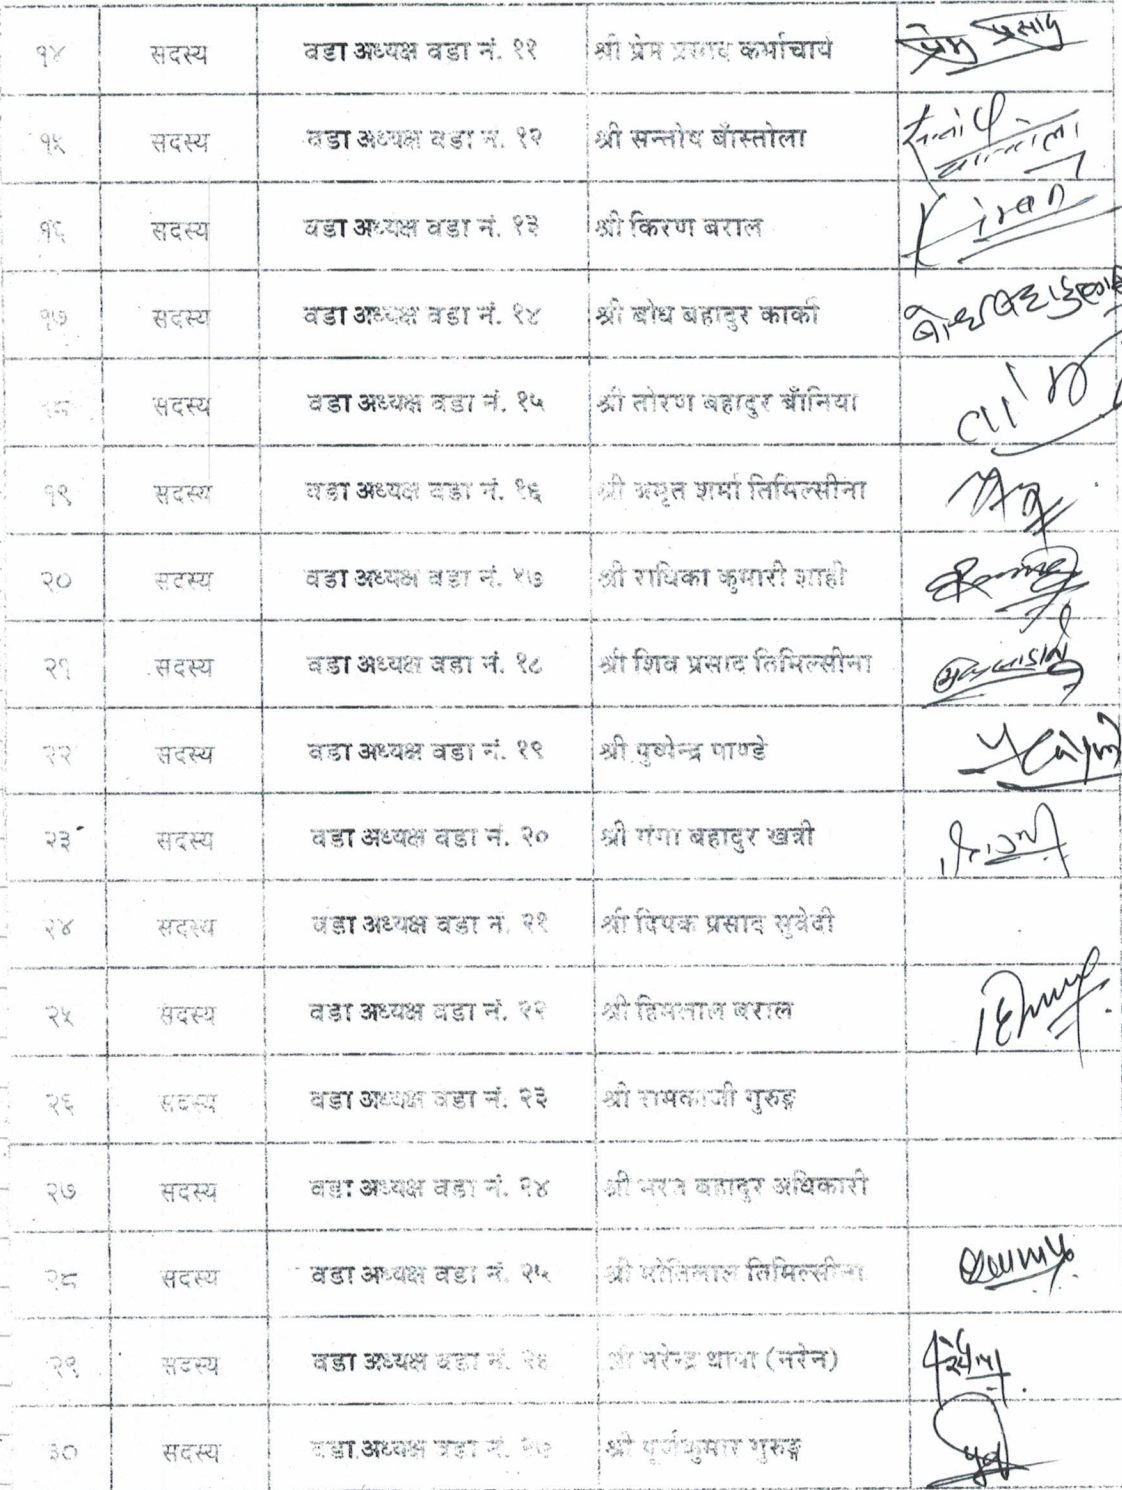 १४ सदस्य वडा अध्यक्ष वडा नं. ११ श्री प्रेम प्रसाद कर्माचार्य प्रेम प्रसाद
१५ सदस्य वडा अध्यक्ष वडा नं. १२ श्री सन्तोष बाँस्तोला
१६ सदस्य वडा अध्यक्ष वडा नं. १३ श्री किरण बराल Kiran
१७ सदस्य वडा अध्यक्ष वडा नं. १४ श्री बोध बहादुर कार्की
१८ सदस्य वडा अध्यक्ष वडा नं. १५ श्री तोरण बहादुर बाँनिया
१९ सदस्य वडा अध्यक्ष वडा नं. १६ श्री अमृत शर्मा तिमिल्सीना
२० सदस्य वडा अध्यक्ष वडा नं. १७ श्री राधिका कुमारी शाही
२१ सदस्य वडा अध्यक्ष वडा नं. १८ श्री शिव प्रसाद तिमिल्सीना
२२ सदस्य वडा अध्यक्ष वडा नं. १९ श्री पुष्पेन्द्र पाण्डे
२३ सदस्य वडा अध्यक्ष वडा नं. २० श्री गंगा बहादुर खत्री
२४ सदस्य वडा अध्यक्ष वडा नं. २१ श्री दिपक प्रसाद सुवेदी
२५ सदस्य वडा अध्यक्ष वडा नं. २२ श्री हिमलाल बराल
२६ सदस्य वडा अध्यक्ष वडा नं. २३ श्री रामकाजी गुरुङ्ग
२७ सदस्य वडा अध्यक्ष वडा नं. २४ श्री भरत बहादुर अधिकारी
२८ सदस्य वडा अध्यक्ष वडा नं. २५ श्री मोतिलाल तिमिल्सीना
२९ सदस्य वडा अध्यक्ष वडा नं. २६ श्री नरेन्द्र थापा (नरेन)
३० सदस्य वडा अध्यक्ष वडा नं. २७ श्री पूर्णकुमार गुरुङ्ग